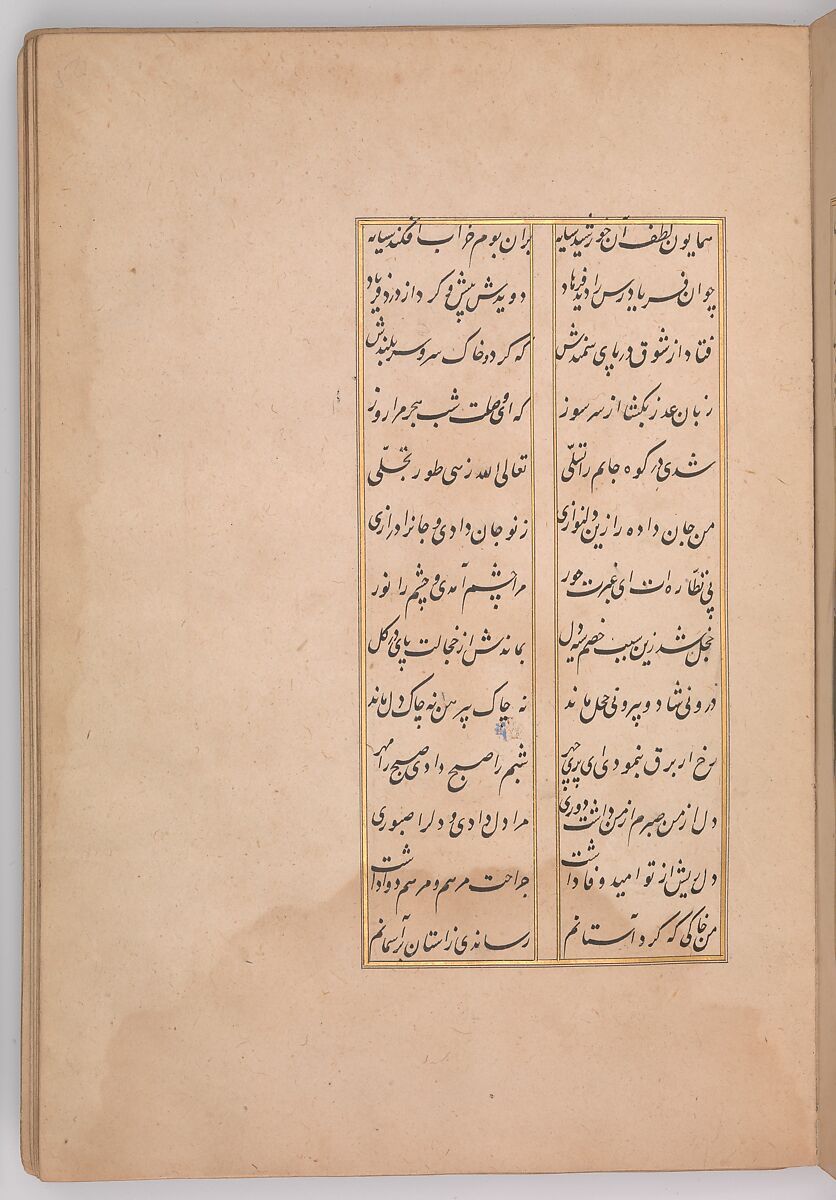 همایون لطف آن خورشید سایه بران بوم خراب افکند سایه
چو ان فریادرس را دید فرهاد دویدش پیش و کرد از درد فریاد
فتاد از شوق در پای سمندش که کرد و خاک سر و سربلندش
زبان عذر بکشا از سر سوز که ای وصلت شب هجر مرا روز
شدی در کوه جانم را تسلّی تعالی الله زهی طور تجلّی
من جان داده را زین دلنوازی ز نو جان دادی و جانرا درازی
پی نظّاره ات ای غیرت حور مرا چشم آمدی و چشم را نور
خجل شد زین سبب خصم سیه دل بماندش از خجالت پای در کل
درونی شاد و بیرونی خجل ماند نه چاک پیرهن نه چاک دل ماند
رخ ار برق بنمودی ای پری چهر شبم را صبح دادی صبح را مهر
دل از من صبرم از من داشت دوری مرا دل دادی و دلرا صبوری
دل ریش از تو امید وفا داشت جراحت مرهم و مرهم دوا داشت
من خاکی که کرد آستانم رساندی زاستان بر آسمانم